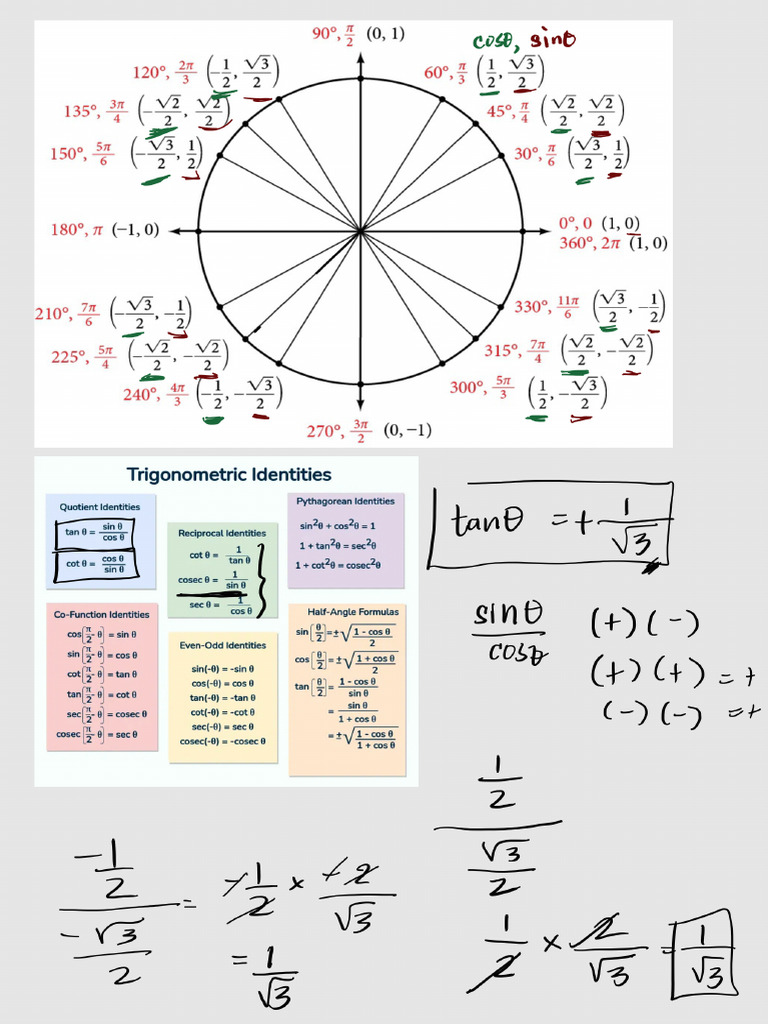 90°, π/2 (0, 1)
cosθ, sinθ
120°, 2π/3 (-1/2, √3/2)
60°, π/3 (1/2, √3/2)
135°, 3π/4 (-√2/2, √2/2)
45°, π/4 (√2/2, √2/2)
150°, 5π/6 (-√3/2, 1/2)
30°, π/6 (√3/2, 1/2)
180°, π (−1, 0)
0°, 0 (1, 0)
360°, 2π (1, 0)
210°, 7π/6 (-√3/2, -1/2)
330°, 11π/6 (√3/2, -1/2)
225°, 5π/4 (-√2/2, -√2/2)
315°, 7π/4 (√2/2, -√2/2)
240°, 4π/3 (-1/2, -√3/2)
300°, 5π/3 (1/2, -√3/2)
270°, 3π/2 (0, −1)
Trigonometric Identities
Quotient Identities
tan θ = sin θ/cos θ
cot θ = cos θ/sin θ
Reciprocal Identities
cot θ = 1/tan θ
cosec θ = 1/sin θ
sec θ = 1/cos θ
Pythagorean Identities
sin²θ + cos²θ = 1
1 + tan²θ = sec²θ
1 + cot²θ = cosec²θ
Co-Function Identities
cos[π/2 - θ] = sin θ
sin[π/2 - θ] = cos θ
cot[π/2 - θ] = tan θ
tan[π/2 - θ] = cot θ
sec[π/2 - θ] = cosec θ
cosec[π/2 - θ] = sec θ
Even-Odd Identities
sin(-θ) = -sin θ
cos(-θ) = cos θ
tan(-θ) = -tan θ
cot(-θ) = -cot θ
sec(-θ) = sec θ
cosec(-θ) = -cosec θ
Half-Angle Formulas
sin[θ/2] = ±√(1 - cos θ/2)
cos[θ/2] = ±√(1 + cos θ/2)
tan[θ/2] = 1 - cos θ/sin θ
= sin θ/1 + cos θ
= ±√(1 - cos θ/1 + cos θ)
tanθ = + 1/√3
sinθ/cosθ (+) (-)
(+) (+) = +
(-) (-) = +
(1/2)/(√3/2)
1/2 × 2/√3 = 1/√3
(-1/2)/(-√3/2) = -1/2 × -2/√3
= 1/√3